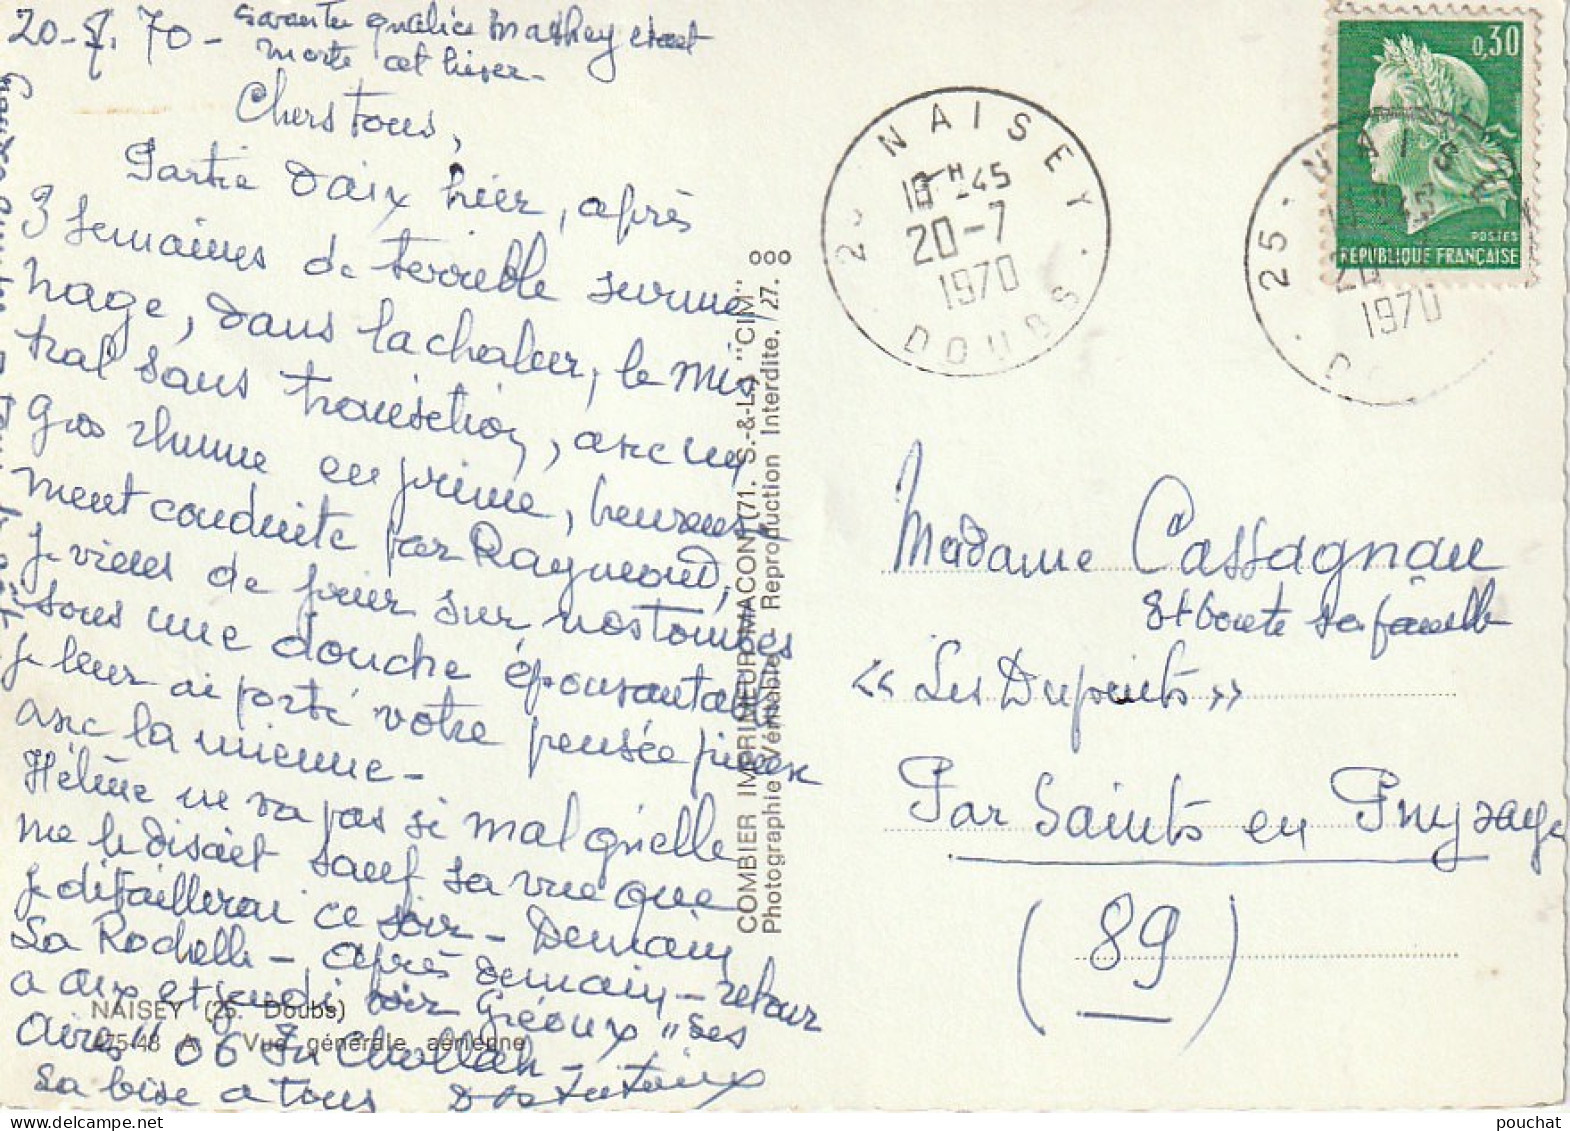 20-7-70 -
morte cet hiver -
Chers tous,
Partie d'aix hier, après
3 semaines de terrible surme,
nage, dans la chaleur, le mis
tral sans transition, avec un
gros rhume en prime, heureuse
ment conduite par Raymond,
je viens de prier sur nos tombes
sous une douche épouvantable
je leur ai porté votre pensée pieuse
avec la mienne -
Hélène ne va pas si mal qu'elle
me le disait sauf sa vue que
je détaillerai ce soir - Demain
La Rochelle - après demain - retour
a aix et jeudi soir Gréoux "Les
aires"
La bise a tous
NAISEY (25. Doubs)
475-48 A - Vue générale aérienne
COMBIER IMPRIMEUR MACON (71. S.-&-L.) "CIM"
Photographie Véritable - Reproduction Interdite. 27.
NAISEY
18H45
20-7
1970
DOUBS
25 - NAISEY
20
1970
0,30
POSTES
REPUBLIQUE FRANÇAISE
Madame Cassagnau
et toute sa famille
« Les Dupents »
Par Saints en Puysaye
(89)
pouchat